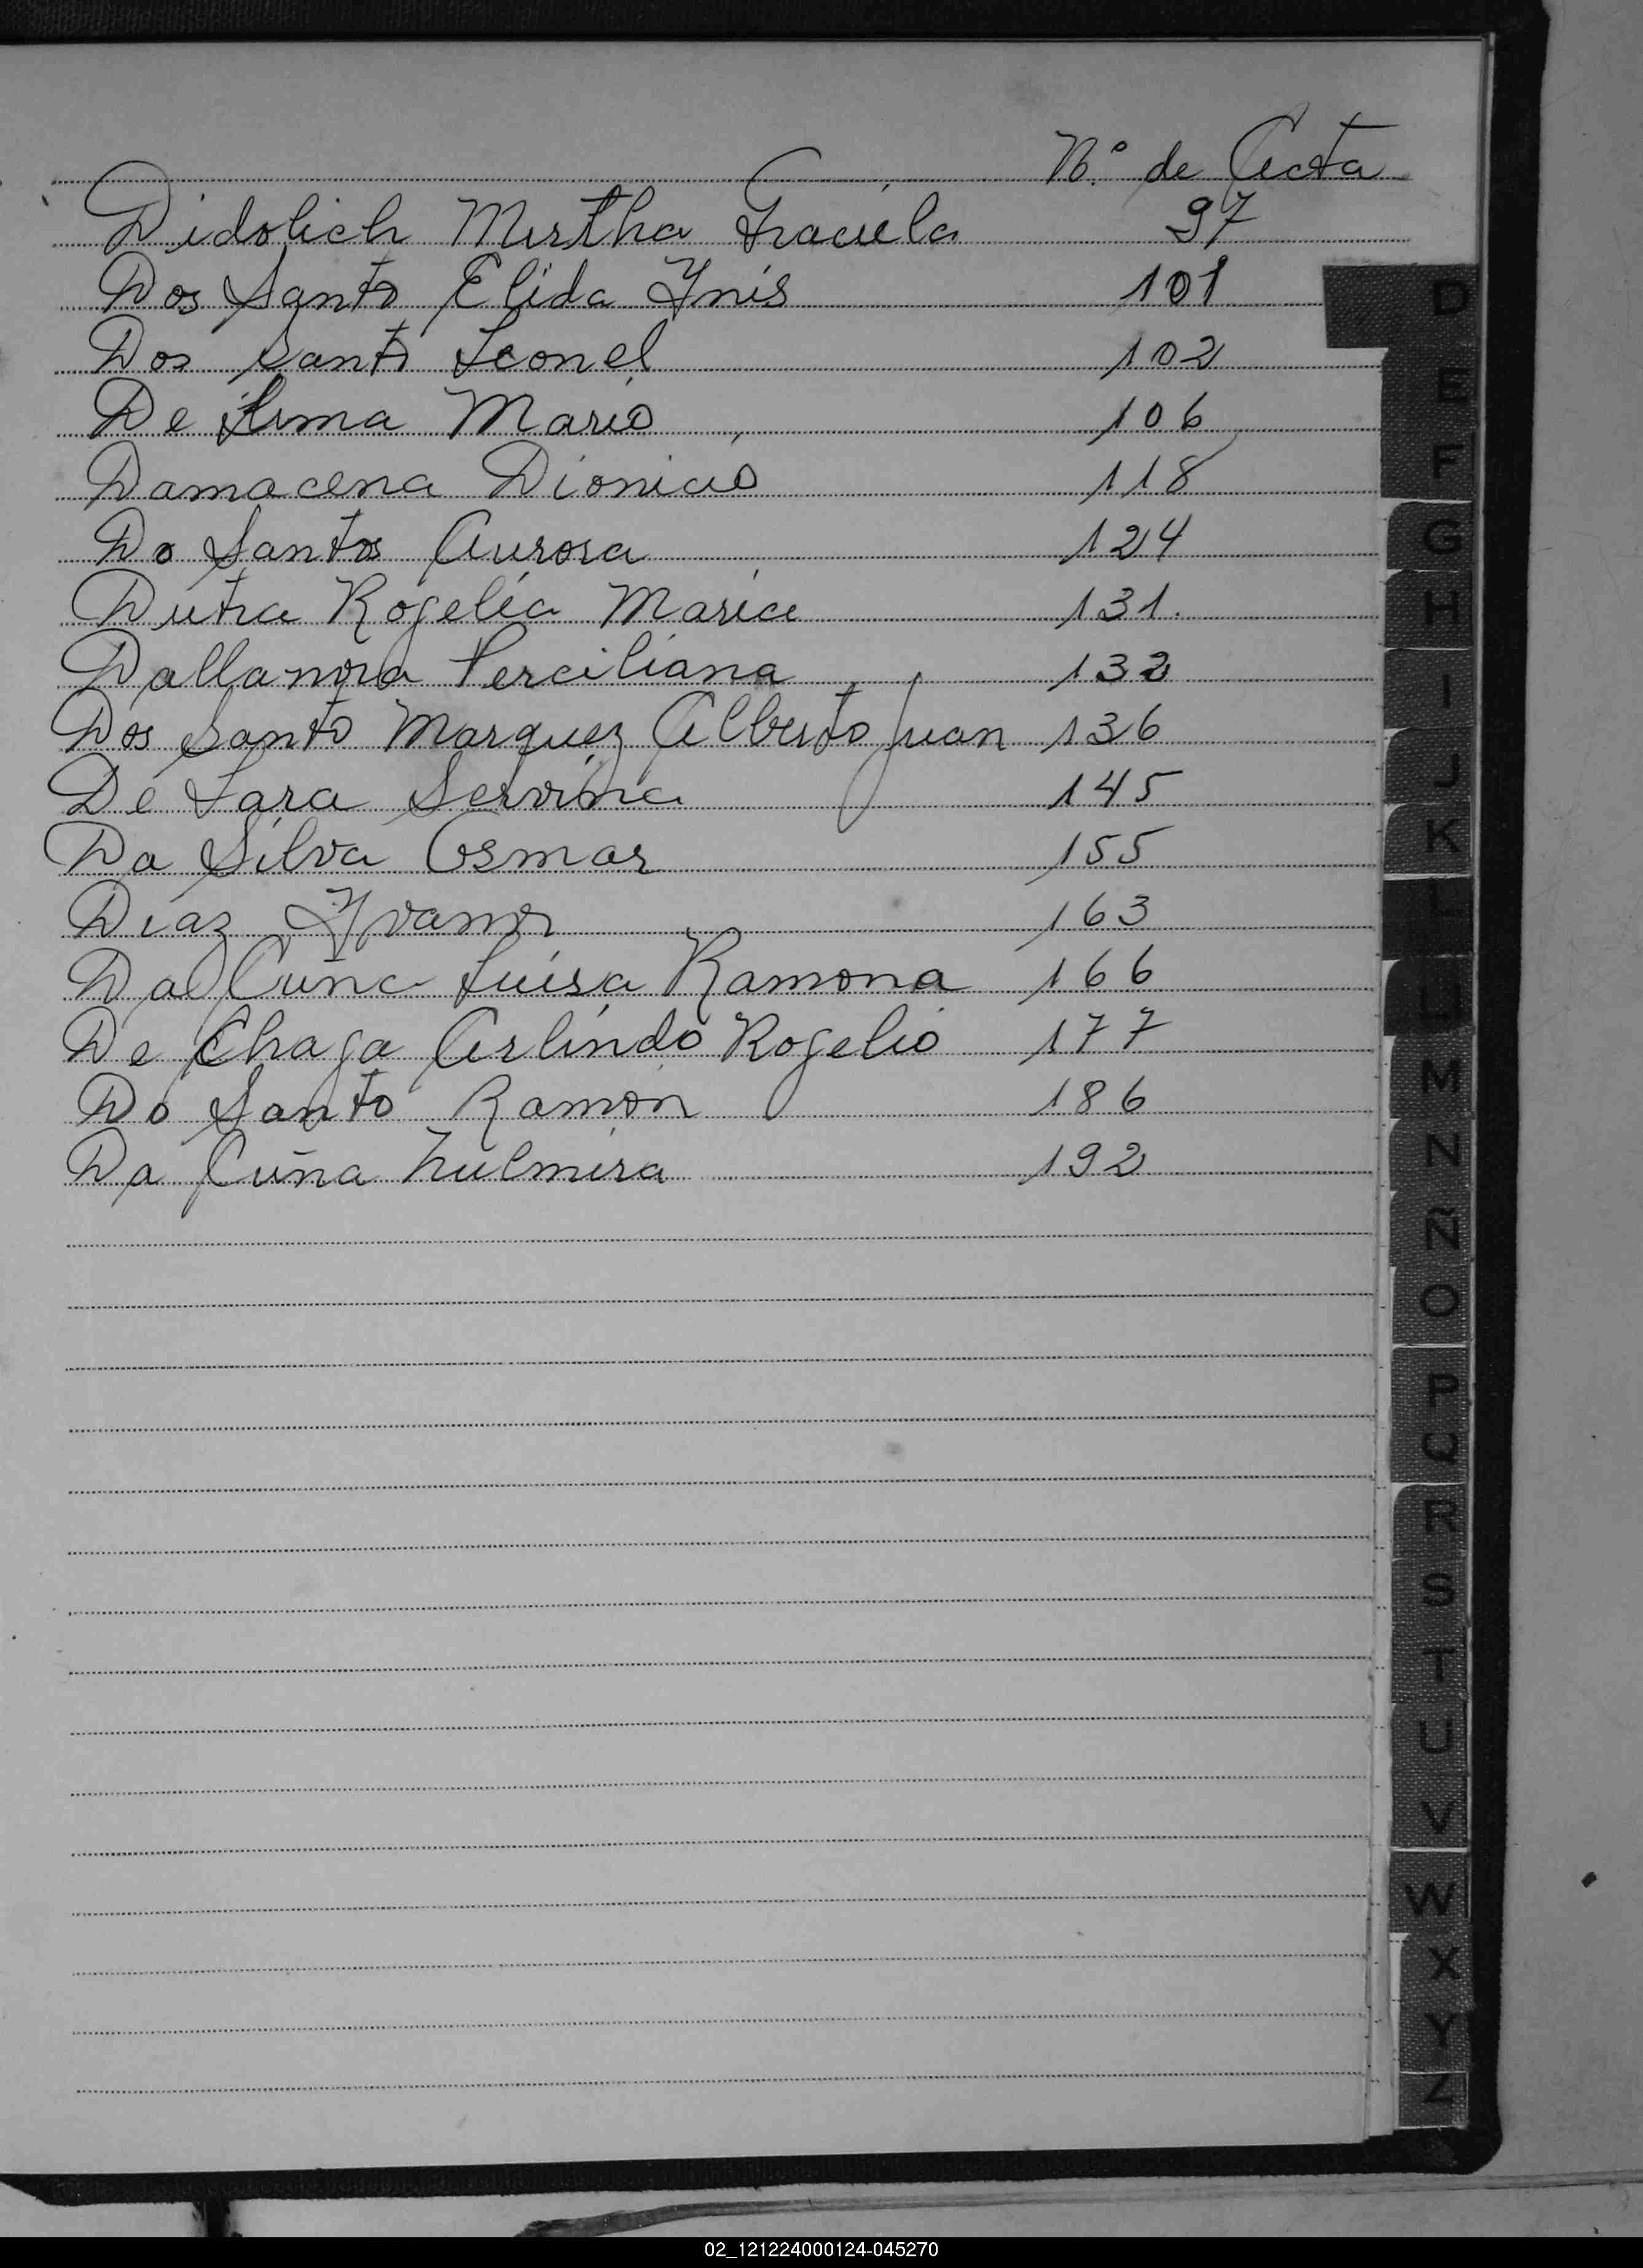 Nº de Acta
Didolich Mirtha Graciela 97
Dos Santo Elida Ynis 101
Dos Santo Leonel 102
De Lima Mario 106
Damacena Dionicio 118
Do Santos Aurora 124
Dutra Rogelia Maria 131.
Dallanora Perciliana 132
Dos Santo Marquez Alberto Juan 136
De Lara Servina 145
Da Silva Osmar 155
Diaz Yvanor 163
Da Cuña Luisa Ramona 166
De Chaga Arlindo Rogelio 177
Do Santo Ramon 186
Da Cuña Zulmira 192
D
E
F
G
H
I
J
K
L
LL
M
N
Ñ
O
P
Q
R
S
T
U
V
W
X
Y
Z
02_121224000124-045270